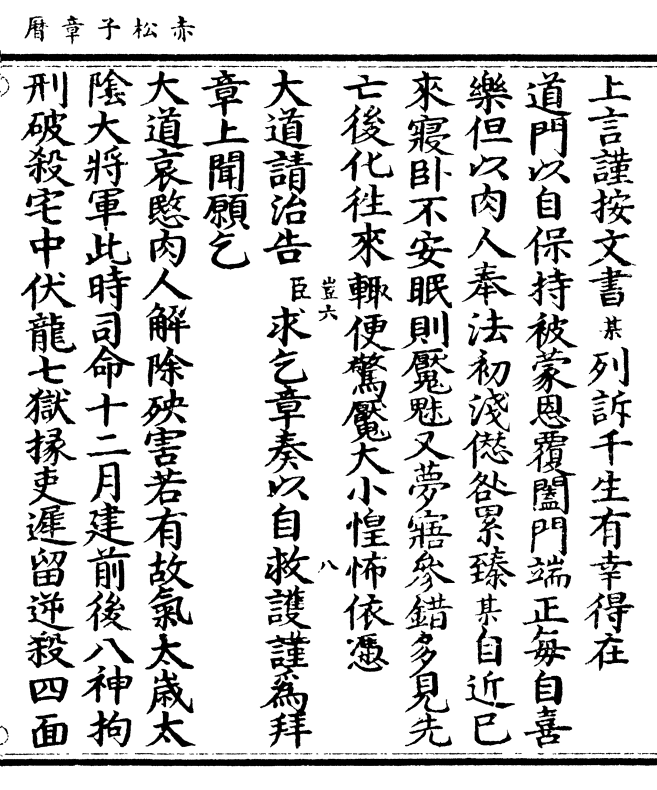 赤松子章曆
上言謹按文書某列訴千生有幸得在
道門以自保持被蒙恩覆闔門端正每自喜
樂但以肉人奉法初淺愆咎累臻某自近已
來寢卧不安眠則魘魅又夢寤參錯多見先
亡後化往來輒便驚魘大小惶怖依憑
豈六 八
大道請治告臣求乞章奏以自救護謹為拜
章上聞願乞
大道哀愍肉人解除殃害若有故氣太歲太
陰大將軍此時司命十二月建前後八神拘
刑破殺宅中伏龍七獄掾吏遲留逆殺四面